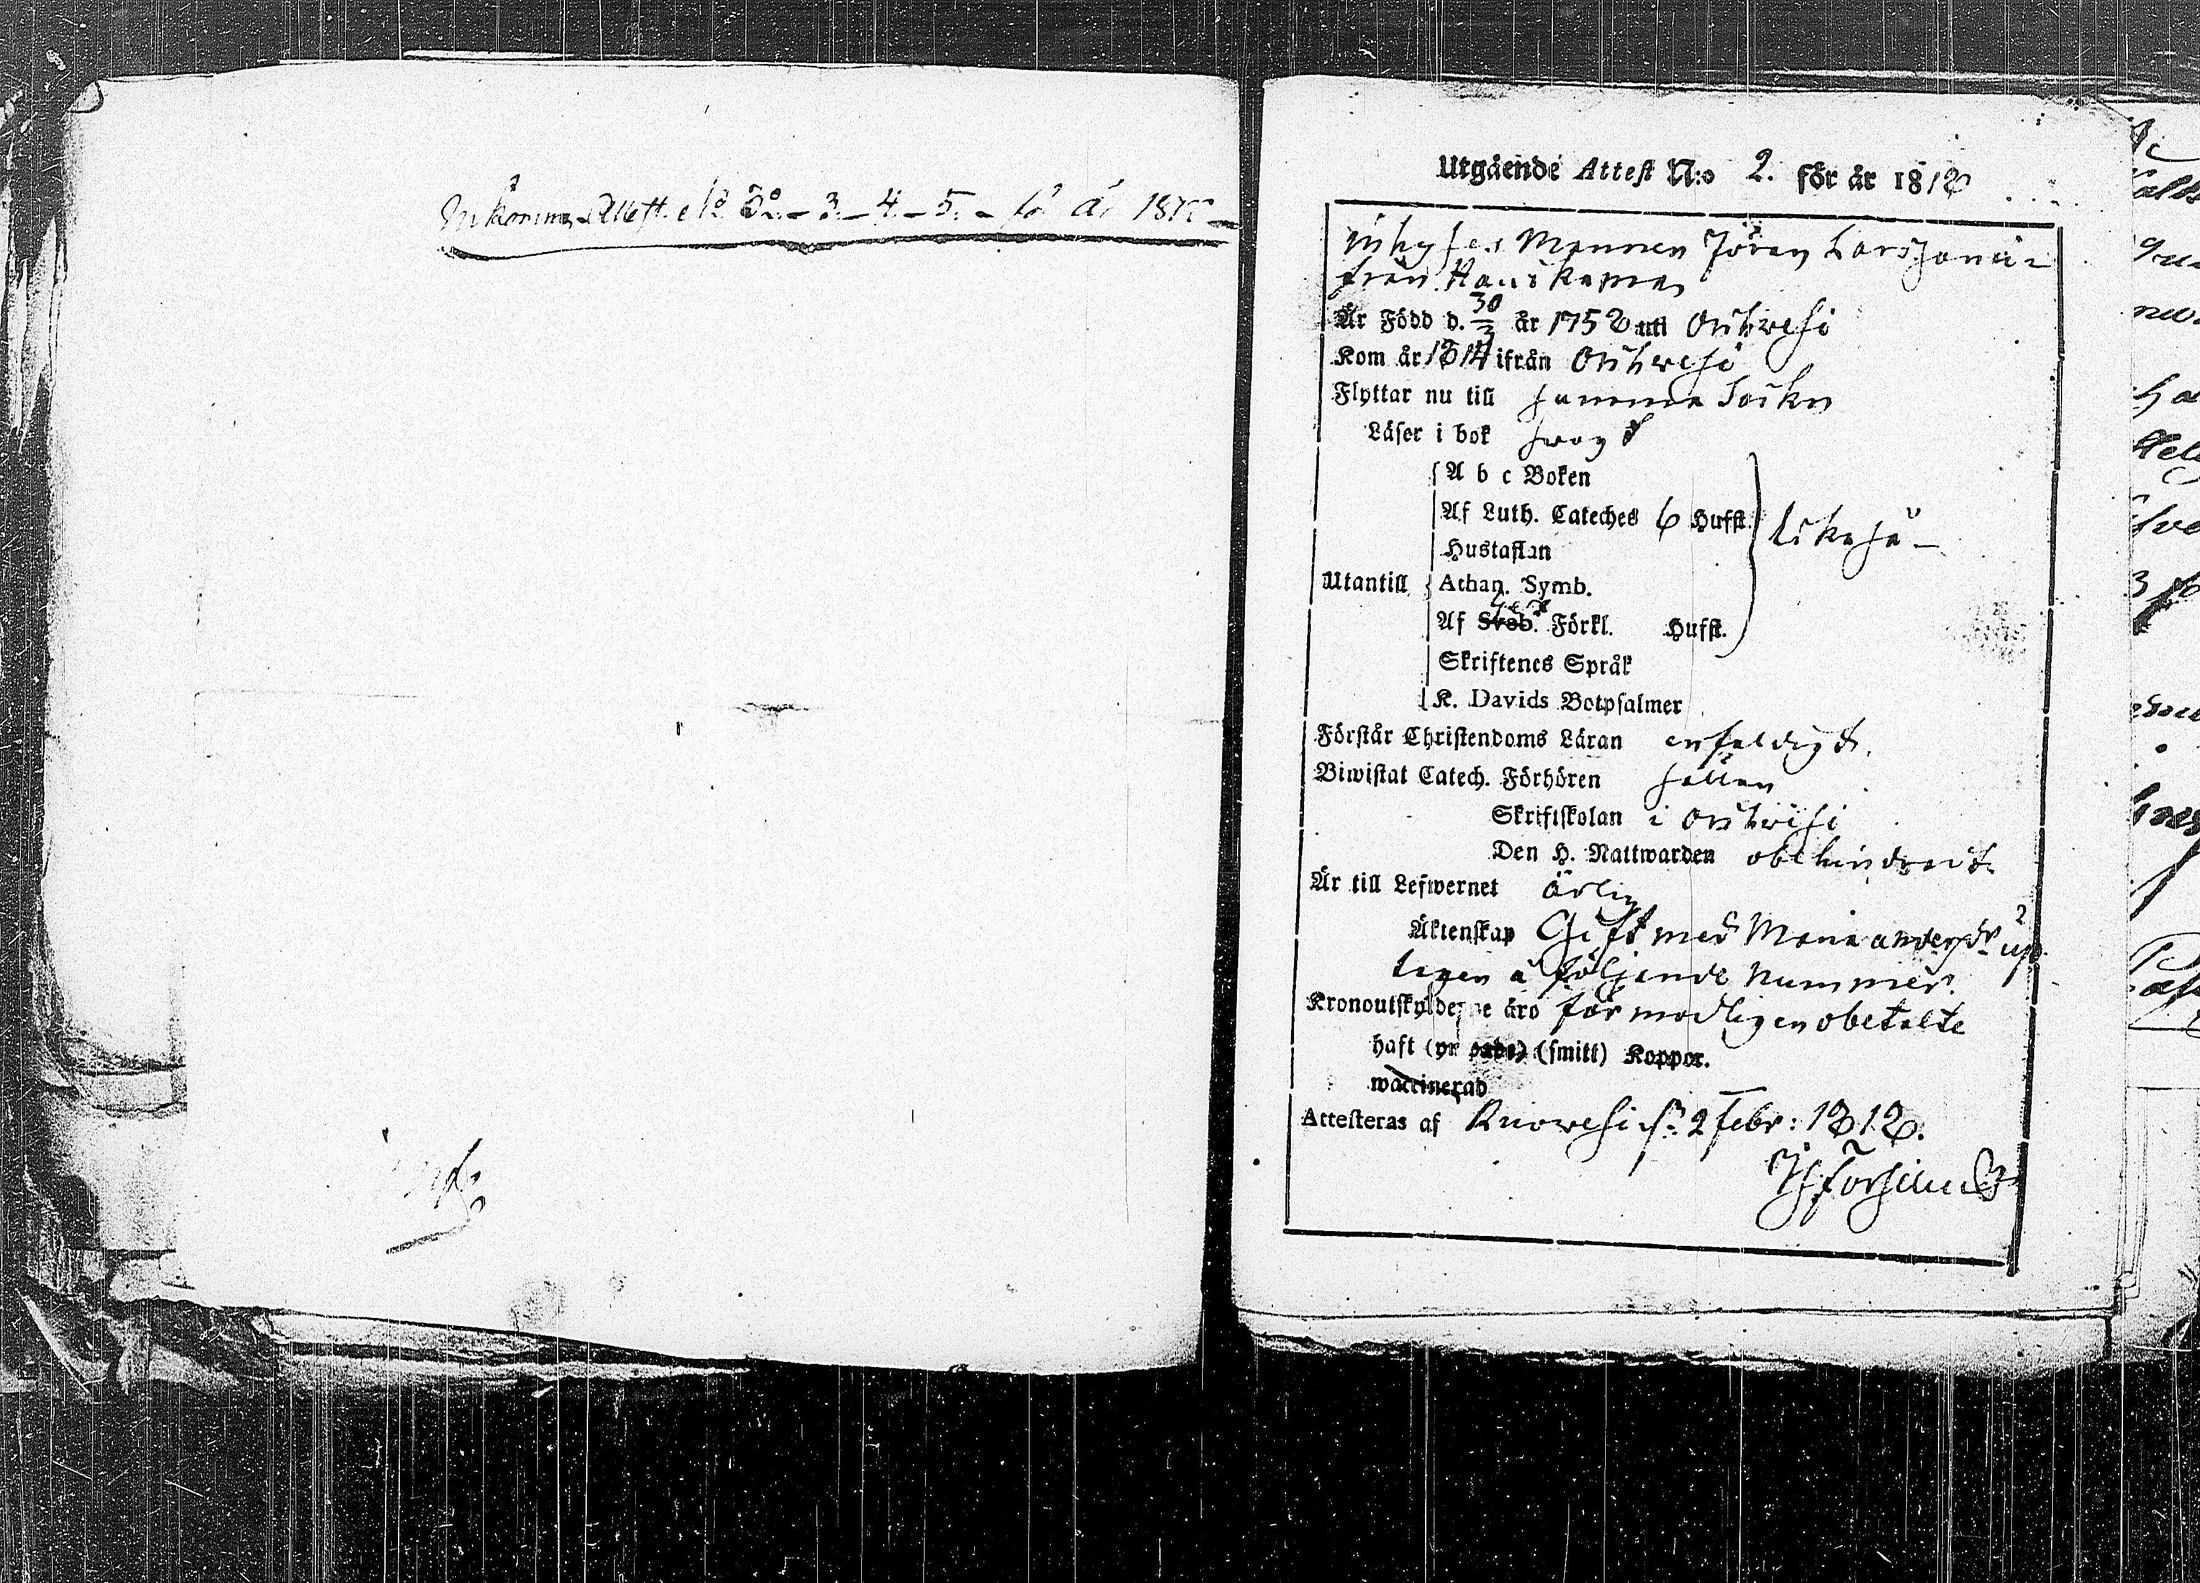 Inkomne Attest. No 2. - 3. - 4. - 5. - för år 1818
Utgående Attest N:o 2. för år 1818
Inhyses Mannen Jöran Larsson
från Hauskama
Är Född d. 30/3 år 1758 uti Orihvesi
Kom år 1814 ifrån Orihvesi
Flyttar nu till samma Sokn
Läser i bok swagt
A b c Boken
Af Luth. Cateches 6 Hufst. likaså
Hustaflan
Utantill Athan. Symb.
Af Sveb. Förkl. Hufst.
Skriftenes Språk
K. Davids Botpsalmer
Förstår Christendoms Läran enfaldigt.
Biwistat Catech. Förhören sällan
Skriftskolan i Orihvesi
Den H. Nattwarden obehindrat.
Är till Lefwernet ärlig
Äktenskap Gift med Maria Andersdr up
tagen å följande Nummer.
Kronoutskylderne äro förmodligen obetalte
haft (smitt) Koppor.
waccinerad
Attesteras af Ruovesi d. 2 Febr: 1818.